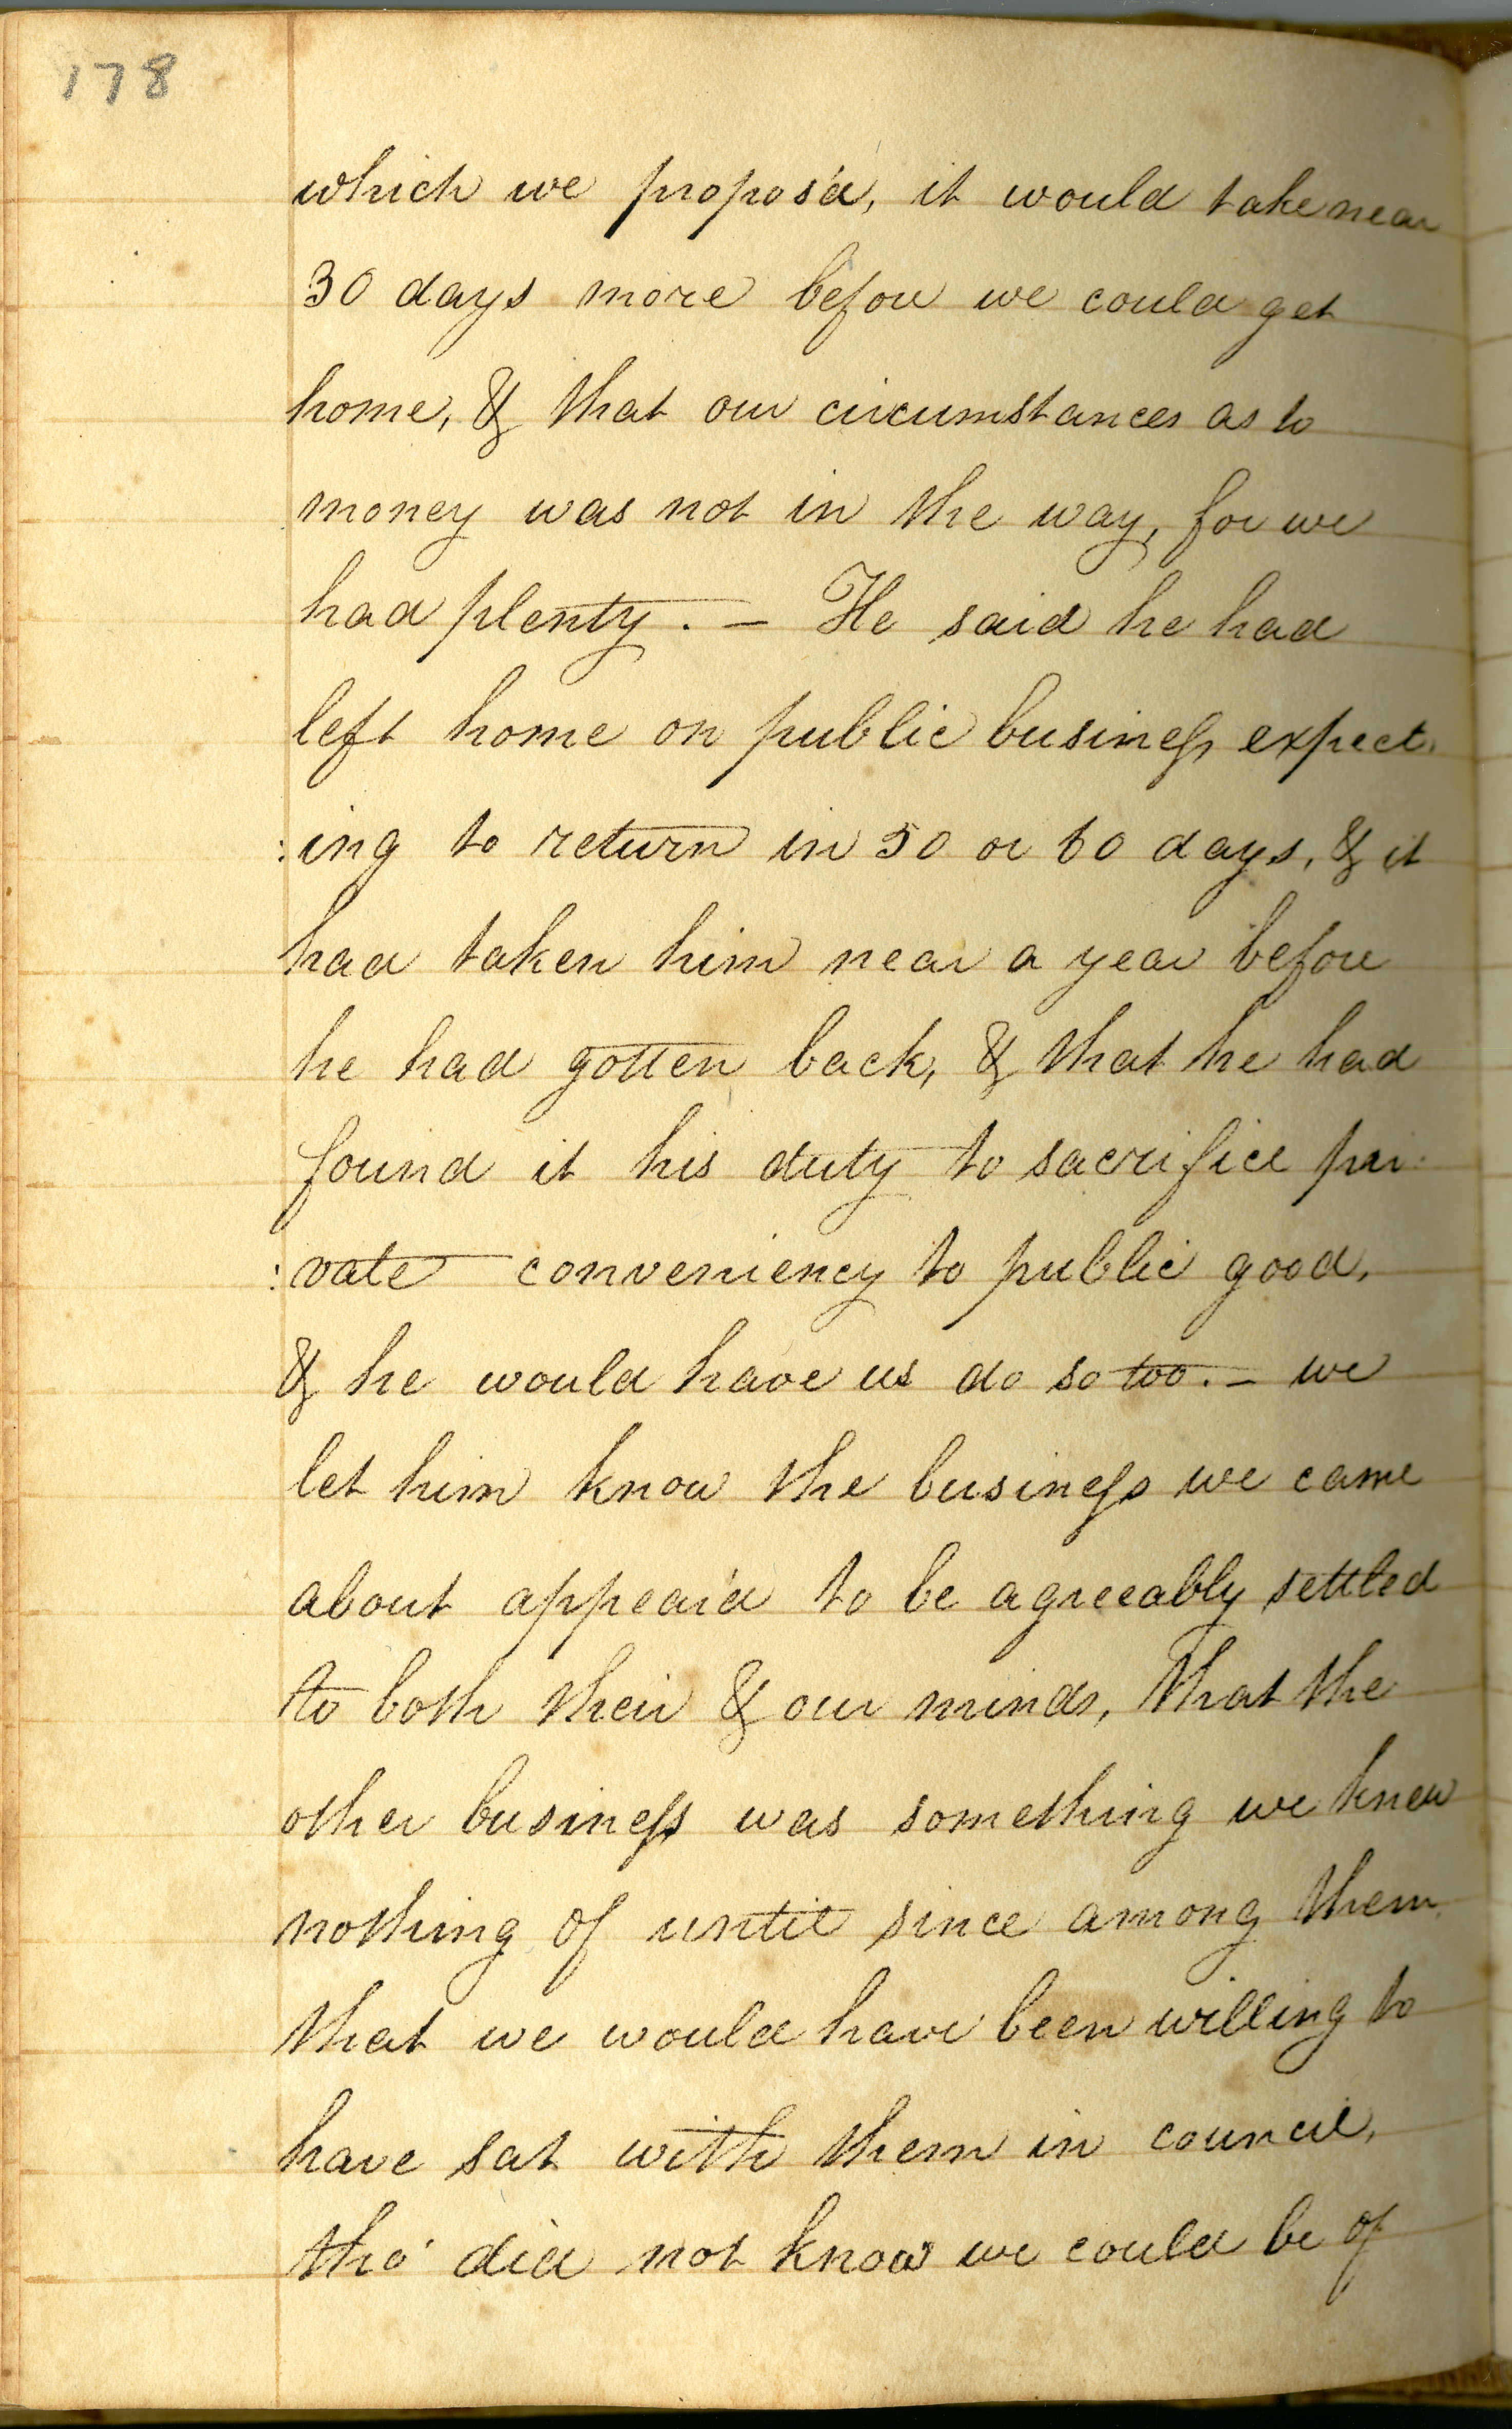 178
which we propos'd, it would take near
30 days more before we could get
home, & that our circumstances as to
money was not in the way, for we
had plenty. — He said he had
left home on public business expect:
:ing to return in 50 or 60 days, & it
had taken him near a year before
he had gotten back, & that he had
found it his duty to sacrifice pri:
:vate conveniency to public good,
& he would have us do so too. — we
let him know the business we came
about appear'd to be agreeably settled
to both their & our minds, That the
other business was something we knew
nothing of until since among them
that we would have been willing to
have sat with them in council,
tho' did not know we could be of